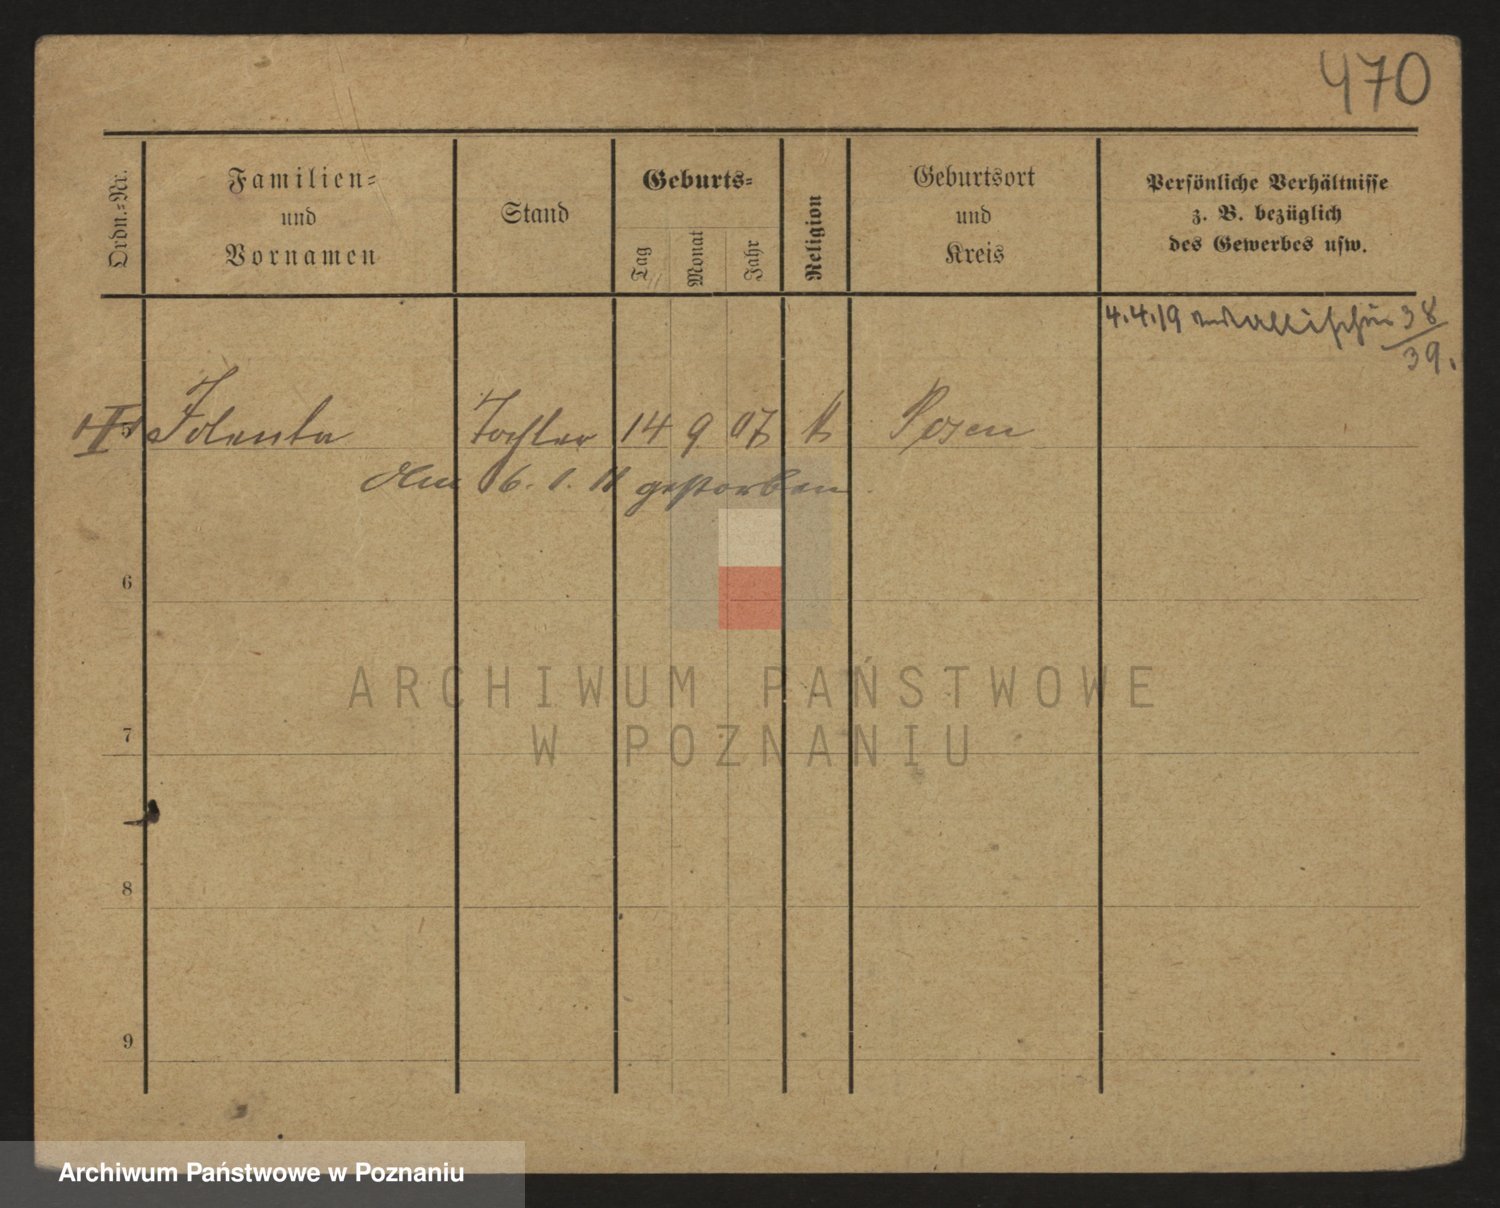 470
Ordn.-Nr.
Familien-
und
Vornamen
Stand
Geburts-
Tag
Monat
Jahr
Religion
Geburtsort
und
Kreis
Persönliche Verhältnisse
z. B. bezüglich
des Gewerbes usw.
4.4.19 38
39.
5 Jolenta Tochter 14 9 07 k Posen
Am 16. 1. 11 gestorben
6
ARCHIWUM PAŃSTWOWE
W POZNANIU
7
8
9
Archiwum Państwowe w Poznaniu